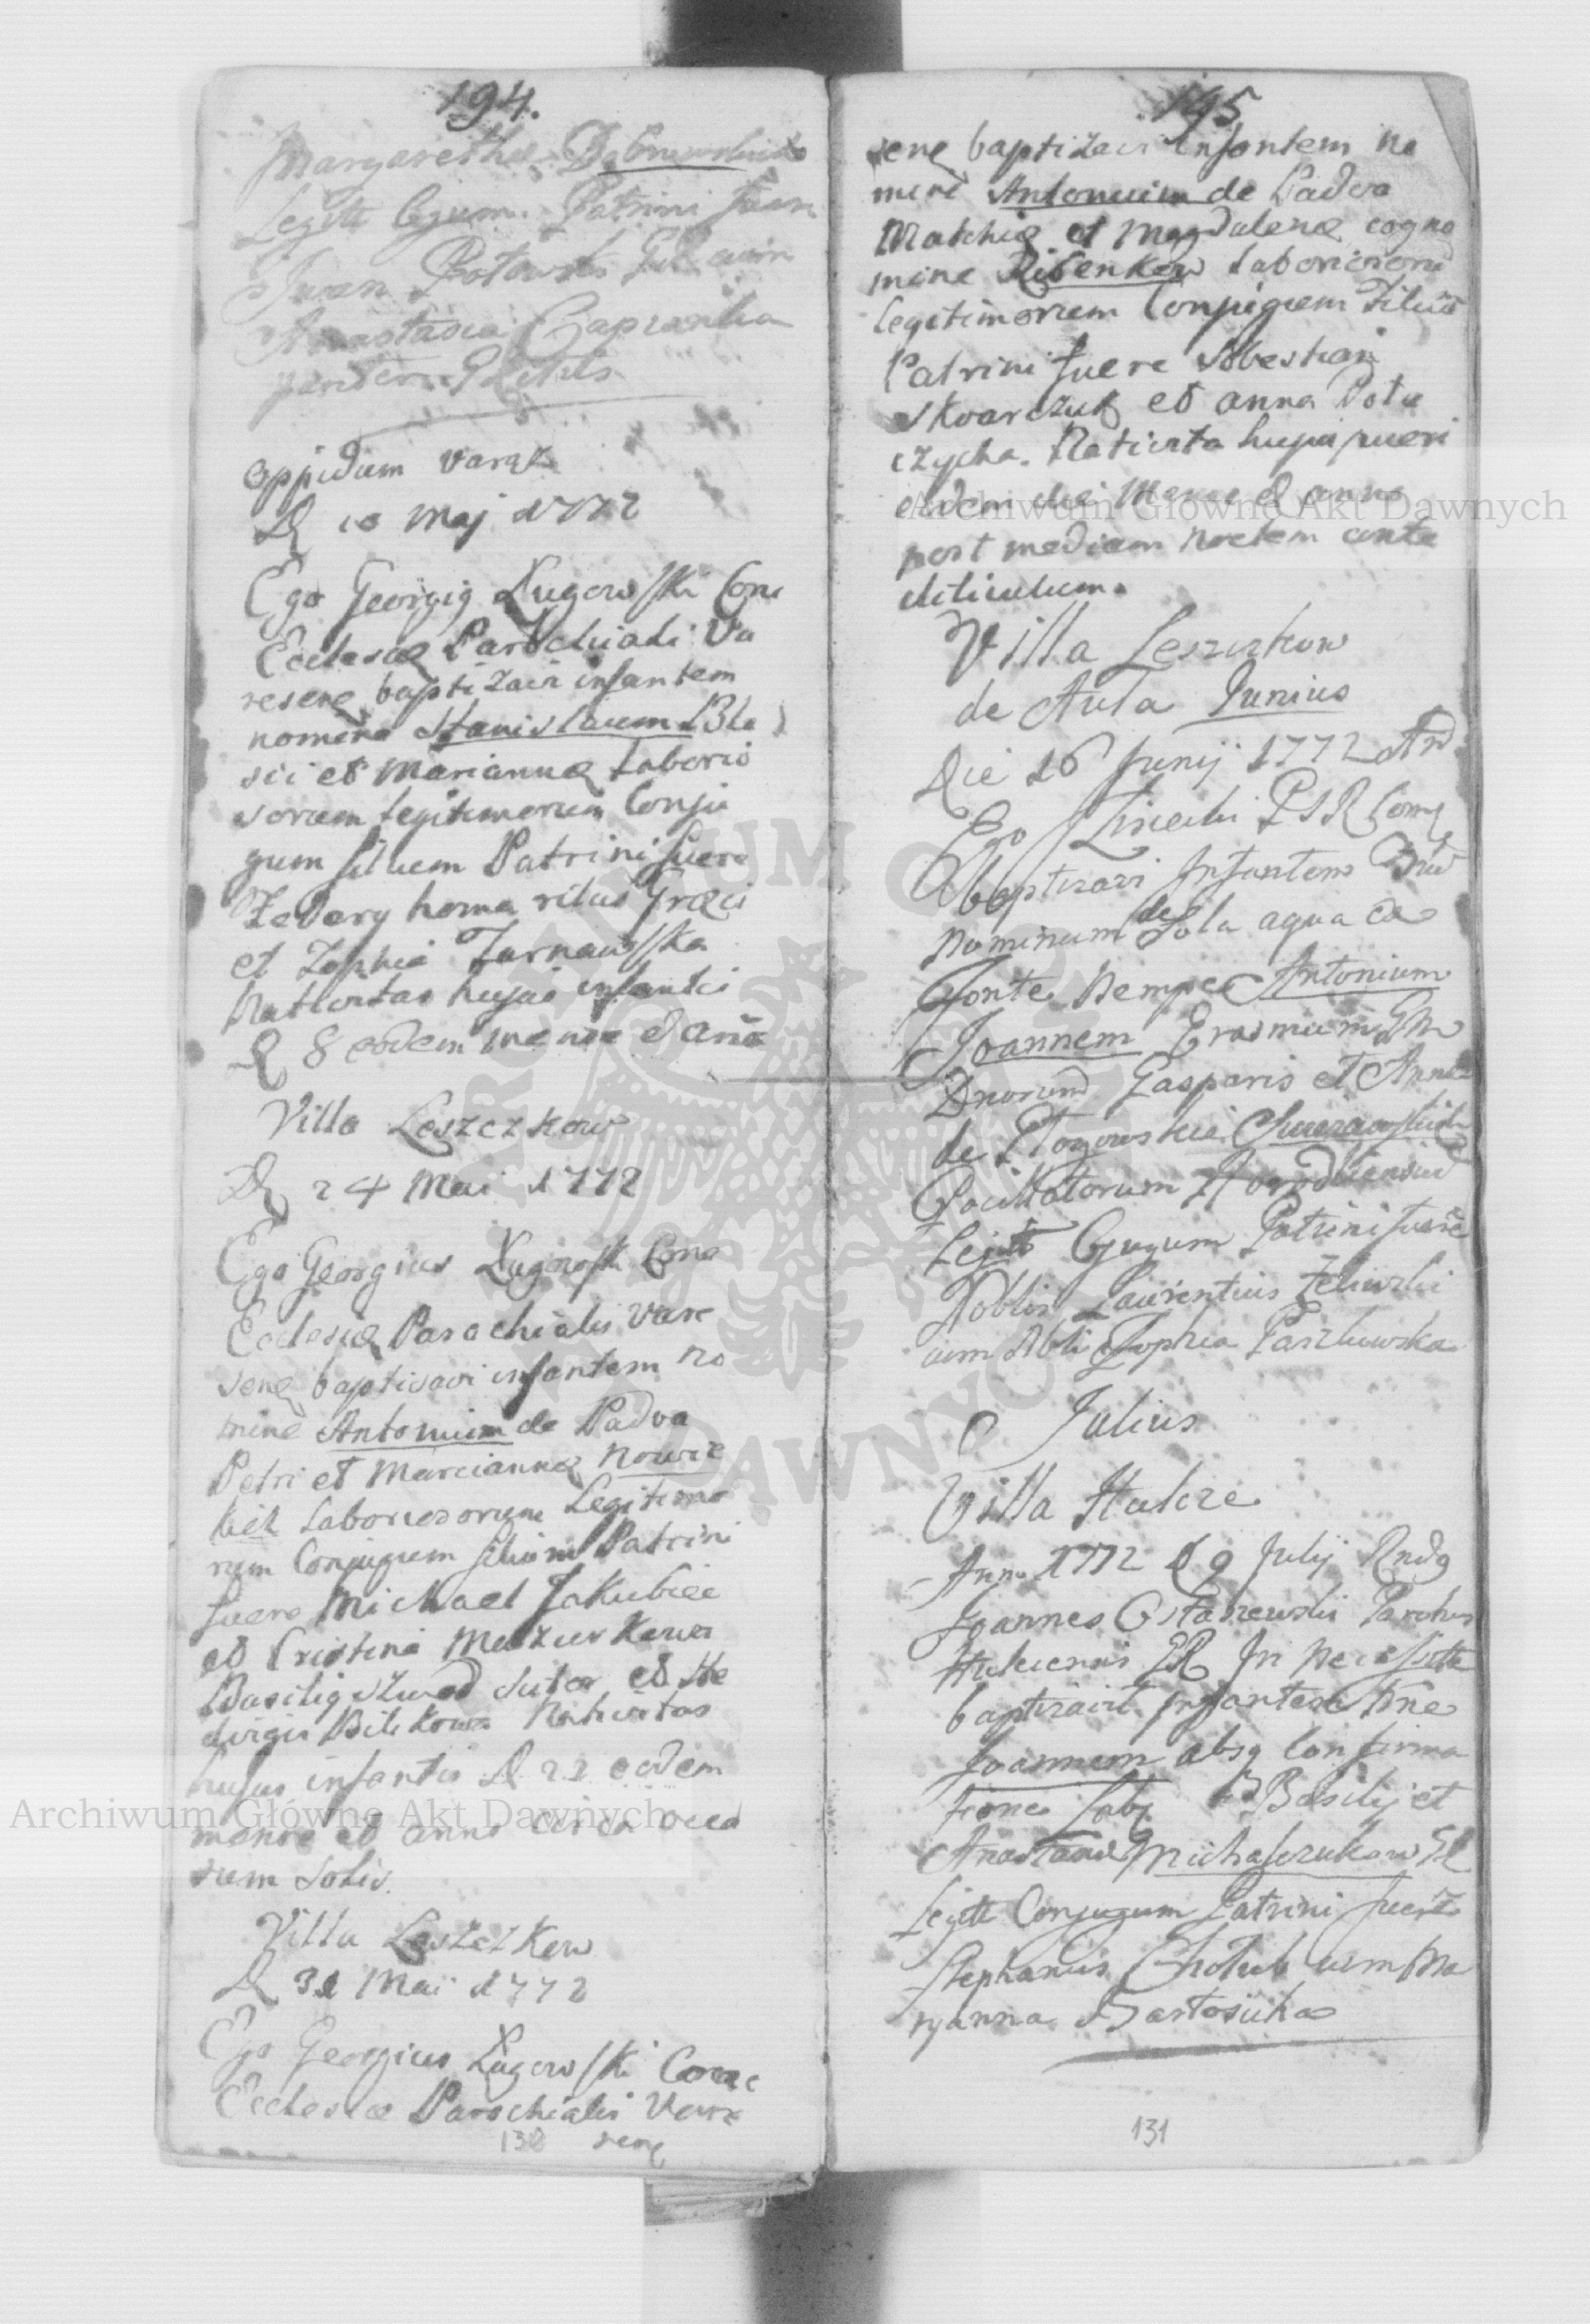 194.
Margarethæ
Legitt Cjgum. Patrini fuere
Anastasia
oppidum Varąz
D 10 Maj 1772
Ego Georgig Ługowski Com
Ecclesiæ Parochiali Va
resenę baptizavi infantem
nomine Stanislaum Bla
sii et Mariannæ laborio
sorum legitimorum Conju
gum filium Patrini fuere
homa ritus Græci
et Zophia Tarnawska
Nativitas hujus infantis
D 8 eodem mense et año
Villa Leszczkow
D 24 Mai 1772
Ego Georgius Ługowsk Com
Ecclesiæ Parochialis Vare
senę baptisavi infantem no
mine Antonium de Padva
Petri et Mariannæ Nowic
kich Laboriosorum Legitimo
rum Conjugum filium Patrini
fuere Michael Jakubiec
et Cristina Mazurkowa
Basilig sutor et He
dvigis Bilikowa Nativitas
hujus infantis D 22 eodem
mense et anno circa occa
sum solis.
Villa Leszczkow
D 31 Mai 1772
Ego Georgius Ługowski Com
Ecclesiæ Parochialis Vare
130 senę
195
senę baptizavi infantem no
mine Antonium de Padva
Mathiæ et Magdalenæ cogno
mine laboriosorū
legitimorum Conjugum Filiū
Patrini fuere Sebestian
Skwarczuk et anna Potu
czycha. Nativita hujus pueri
eodem die Mense et anno
post mediam noctem ante
diliculum.
Villa Leszczkow
de Aula Junius
Die 16 Junij 1772 And
Ego Linecki PSR Comę
baptizavi Infantem
Nominum de Sola aqua ex
Fonte Nempe Antonium
Joannem Erasmum GM
Dnorum Gasparis et Annæ
de
Pocillatorum
Legitt Cjugum Patrini fuere
Noblis Laurentius Zeliwski
cum Nbli Zophia Paszkowska
Julius
Villa Hulcze
Anno 1772 D 9 Julij Rndg
Joannes Ostaszewski Parohus
Hulcensis GR In necessitte
baptizavit infantem Nne
Joannem absq Confirma
tione Basilij et
Anastasiæ Michalczukow
Legitt Conjugum Patrini fuere
Stephanus Chołub cum Ma
ryanna Bartosiuka
131
Archiwum Główne Akt Dawnych
Archiwum Główne Akt Dawnych
ARCHIWUM GŁÓWNE AKT DAWNYCH